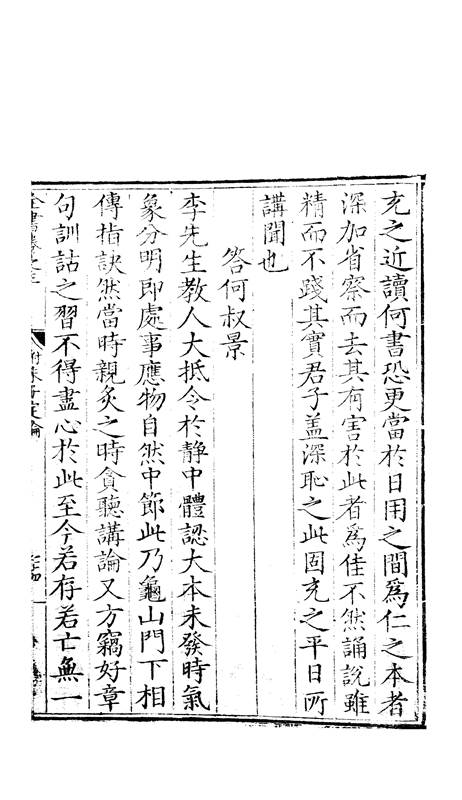 充之近讀何書恐更當於日用之間爲仁之本者
深加省察而去其有害於此者爲佳不然誦說雖
精而不踐其實君子盖深恥之此固充之平日所
講聞也
答何叔景
李先生教人大抵令於静中體認大本未發時氣
象分明即處事應物自然中節此乃龜山門下相
傳指訣然當時親炙之時貪聽講論又方竊好章
句訓詁之習不得盡心於此至今若存若亡無一